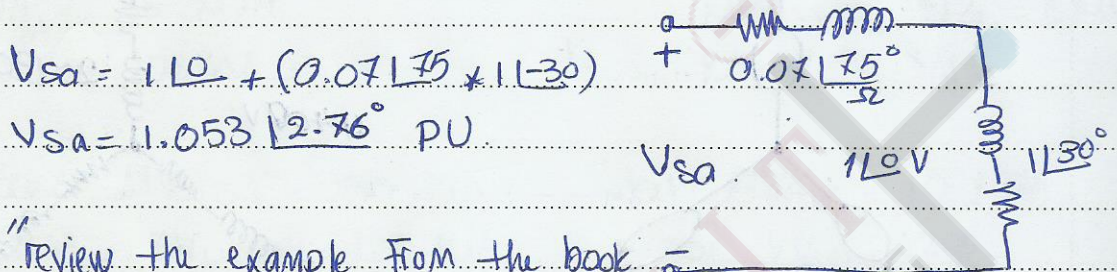 Vsa = 1∠0 + (0.07∠75 * 1∠-30)
+ 0.07∠75° Ω
Vsa = 1.053 ∠2.76° PU.
Vsa. 1∠0 V 1∠30°
"review the example from the book -